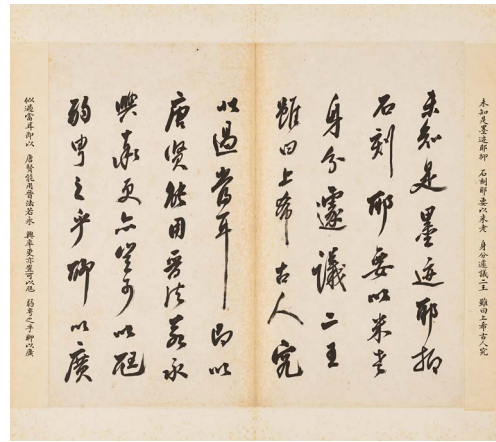 未知是墨迹耶抑 石刻耶要以米老 身分遽議二王 雖曰上希古人究
未知是墨迹耶抑
石刻耶要以米老
身分遽議二王
雖曰上希古人究
似過當耳即以
唐賢能用晉法若永
興率更亦豈可以尪
弱之乎聊以廣
似過當耳即以 唐賢能用晉法若永 興率更亦豈可以尪 弱之乎聊以廣